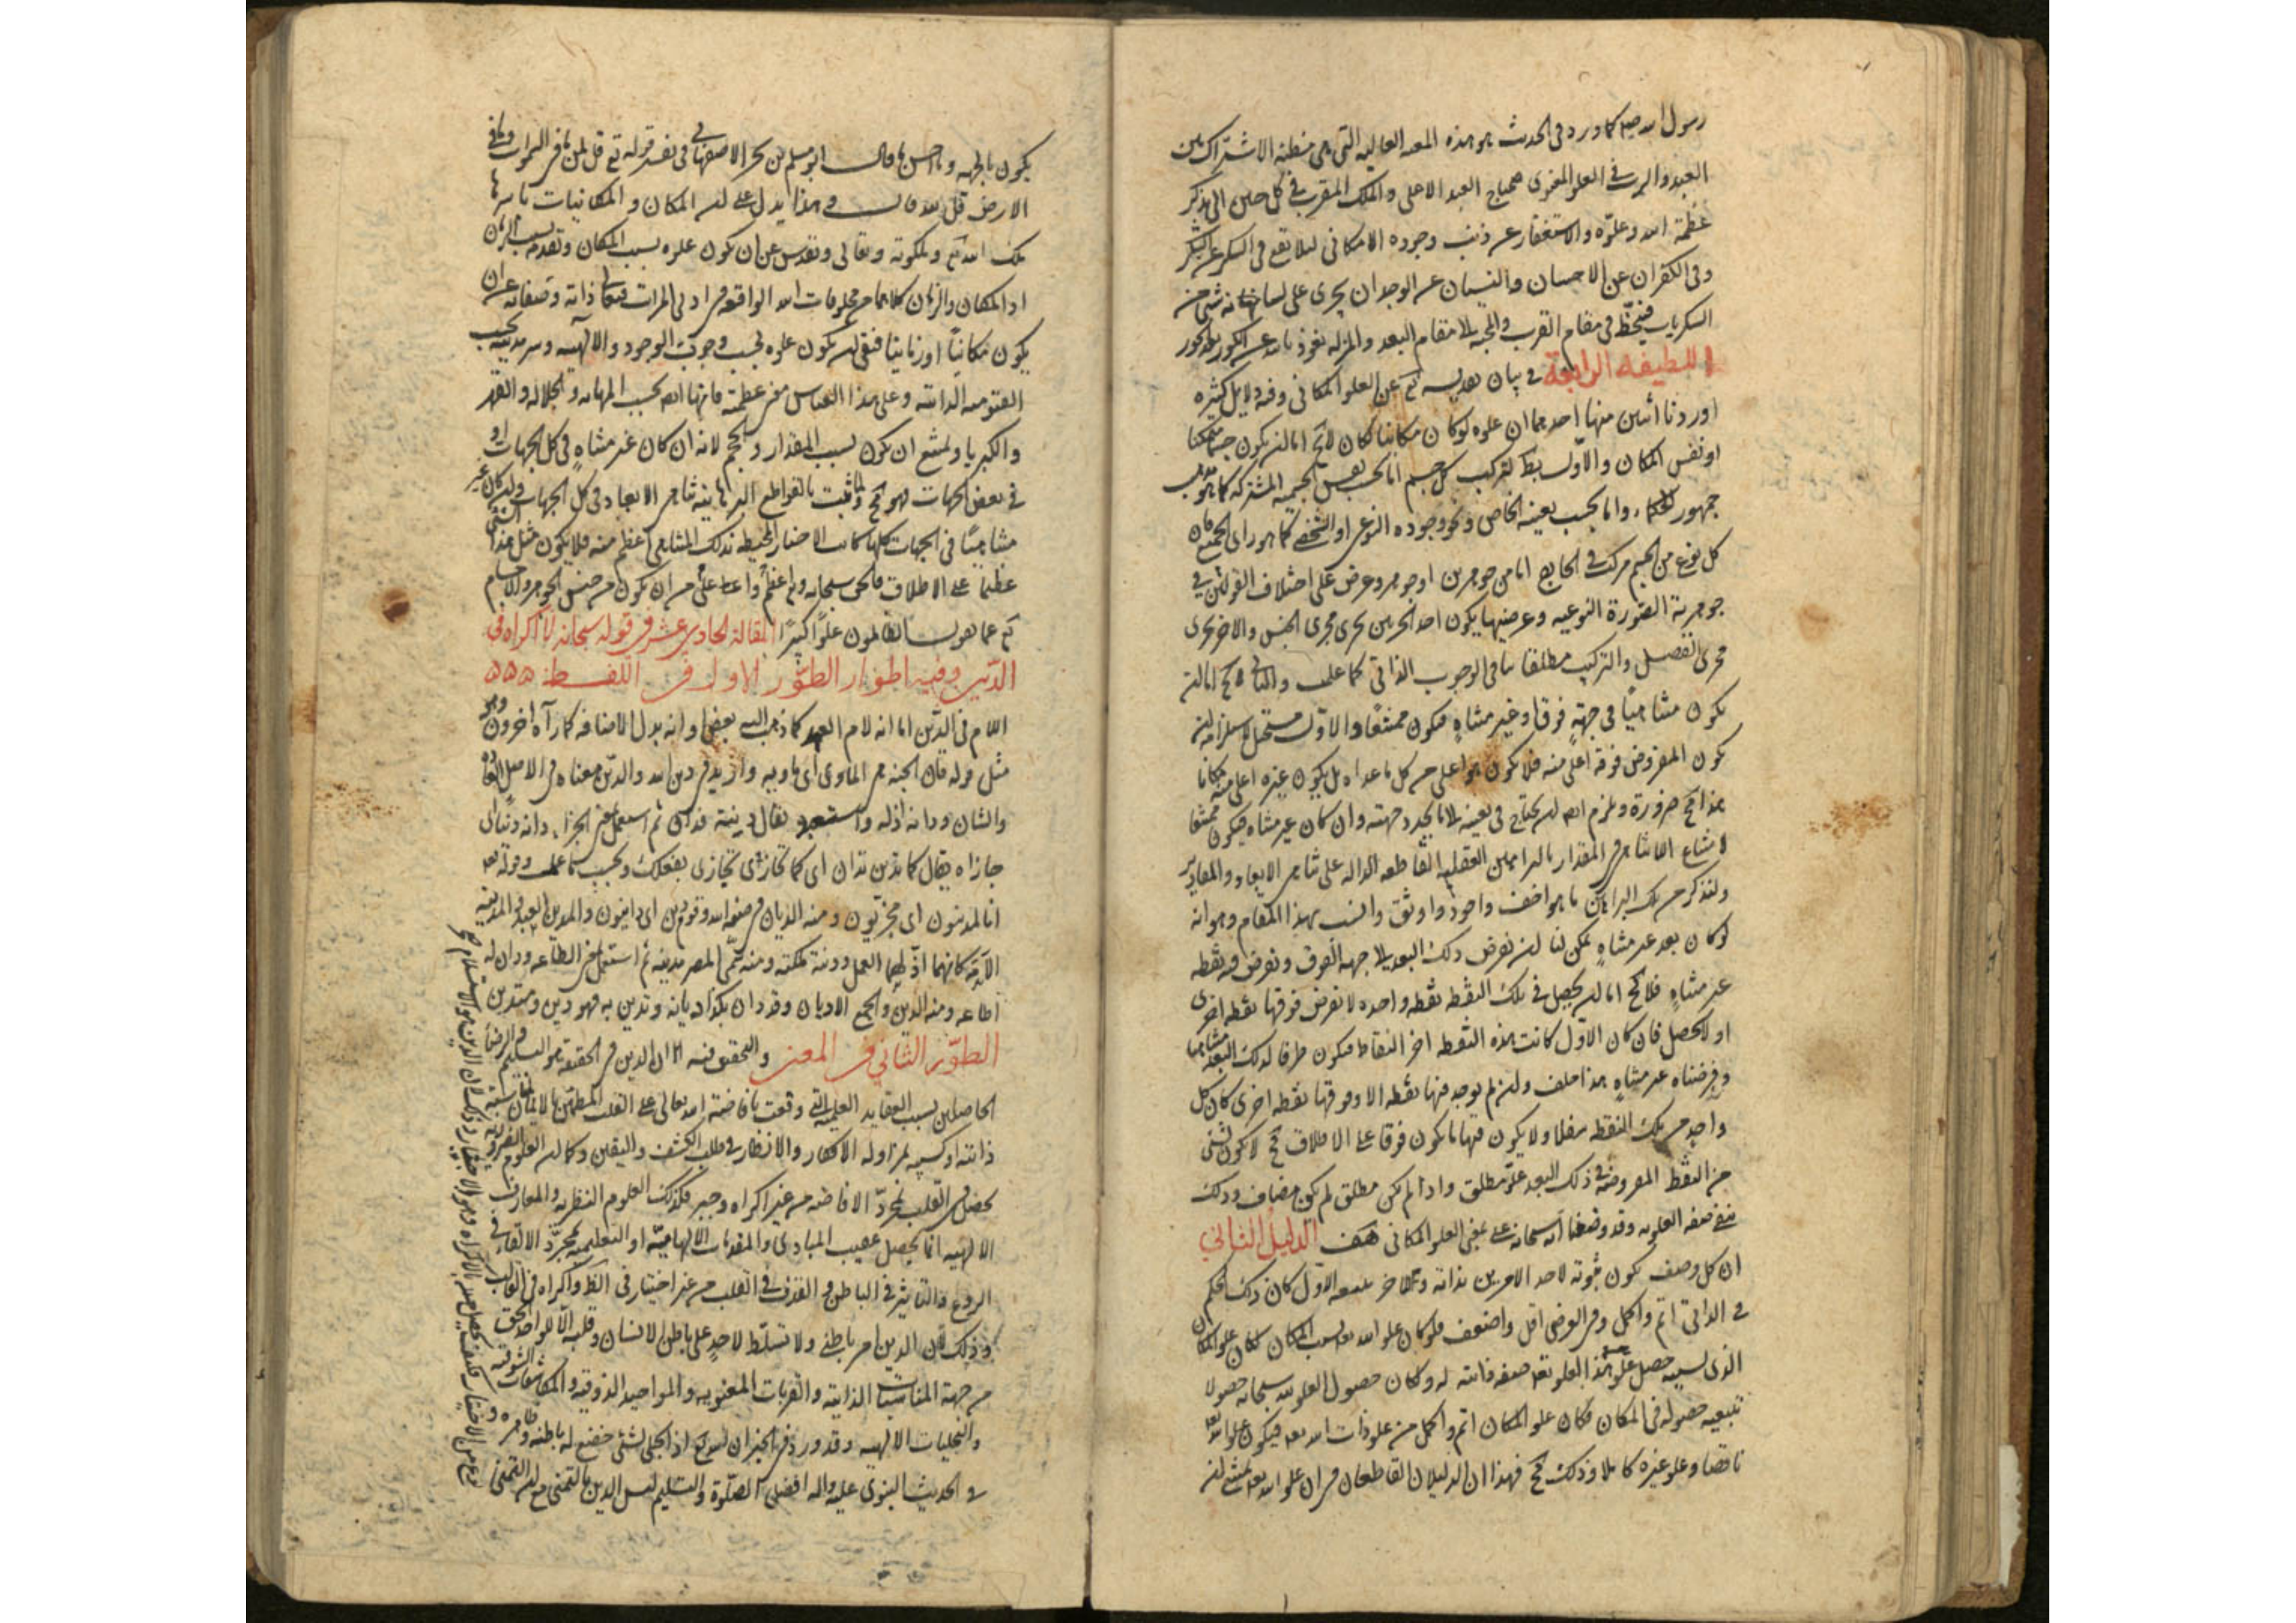 رسول الله صلعم كما ورد فى الحديث هو هذه المعية العالية التى هى مظنة الاشتراك بين
العبد والرب فى العلو المعنوى فيحتاج العبد الاعلى والملك المقرب فى كل حين الى تذكر
عظمة الله وعلوّه والاستغفار عن ذنب وجوده الامكانى لئلا يقع فى السكر عن الشكر
وفى الكفران عن الاحسان والنسيان عن الوجدان يجرى على لسانه شئ من
السكريات فينحطّ فى مقام القرب والمحبة الى مقام البعد والمزلة نعوذ بالله من الحور بعد الكور
اللطيفة الرابعة فى بيان تقديسه تع عن العلو المكانى وفيه دلايل كثيرة
اوردنا اثنين منها احدهما ان علوه لو كان مكانيا لكان لا يخ اما ان يكون جسما متمكنا
او نفس المكان والاوّل بط لتركب كل جسم اما بحسب نفس الجسمية المشتركة كما هو مذهب
جمهور الحكماء واما بحسب تعينه الخاص ونحو وجوده النوعى او الشخصى كما هو راى الجميع فان
كل نوع من الجسم مركب فى الخارج اما من جوهرين او جوهر وعرض على اختلاف القولين فى
جوهرية الصورة النوعية وعرضيتها يكون احد الجزئين يجرى مجرى الجنس والاخر يجرى
مجرى الفصل والتركيب مطلقا ينافى الوجوب الذاتى كما علمت والثانى لا يخ اما ان
يكون متناهيًا فى جهة فوق او غير متناهٍ فيكون ممتنعًا والاوّل مستحيل لاستلزامه ان
يكون المفروض فوقه اعلى منه فلا يكون هو اعلى من كل ما عداه بل يكون غيره اعلى منه مكانا
هذا مح ضرورة ويلزم ايضا ان يحتاج فى تعينه الى ما يحدد جهته وان كان غير متناه فيكون ممتنعا
لامتناع اللاتناهى فى المقدار بالبراهين العقلية القاطعة الدالة على تناهى الابعاد والمقادير
ولنذكر من تلك البراهين ما هو اخف واجود واوثق وانسب بهذا المقام وهو انه
لو كان بعد غير متناهٍ يمكن لنا ان نفرض ذلك البعد الى جهة الفوق ونفرض فيه نقطه
غير متناهٍ فلا يخ اما ان يحصل فى تلك النقطه نقطه واحده لا نفرض فوقها نقطه اخرى
او لا يحصل فان كان الاوّل كانت هذه النقطه اخر النقاط فيكون طرفا لذلك البعد متناهيا
وفرضناه غير متناهٍ هذا خلف وان لم يوجد فيها نقطه الا وفوقها نقطه اخرى كان كل
واحد من تلك النقطه سفلا ولا يكون فيها ما يكون فوقا على الاطلاق فح لا يكون لشئ
من النقط المفروضة فى ذلك البعد علوّ مطلق واذا لم يكن مطلق لم يكن مضاف وذلك
ينفى صفة العلوية وقد وصفنا الله سبحانه على معنى العلو المكانى هف الدليل الثانى
ان كل وصف يكون ثبوته لاحد الامرين بذاته وللاخر بتبعية الاوّل كان ذلك الحكم
فى الذاتى اتم واكمل وفى العرضى اقل واضعف فلو كان علو الله تعه بسبب المكان لكان علو المكان
الذى بسببه حصل هذا العلو لله تعه صفة ذاتية له وكان حصول العلو لله سبحانه حصولا
بتبعية حصوله فى المكان فكان علو المكان اتم واكمل من علو ذات الله تعه فيكون علو الله
ناقصا وعلو غيره كاملا وذلك مح فهذا ان الدليلان القاطعان فى ان علو الله تعه يمتنع ان
يكون بالجهة وما احسن ما قال ابو مسلم بن بحر الاصفهانى فى تفسير قوله تع قل لمن ما فى السموات وما فى
الارض قل لله قال وهذا يدل على ان المكان والمكانيات باسرها
ملك الله تع وملكوته وتعالى وتقدس عن ان يكون علوه بسبب المكان وتقدمه بسبب الزمان
اذ المكان والزمان كلاهما من مخلوقات الله الواقعة فى ادنى المراتب فتعالى ذاته وصفاته عن ان
يكون مكانيًا او زمانيا فبقى ان يكون علوه بحسب وجوب الوجود والالهية وسرمديته بحسب
القيومية الذاتية وعلى هذا القياس معنى عظمته فانها ايضا بحسب المهابة والجلالة والقهر
والكبريا ويمتنع ان يكون بسبب المقدار والحجم لانه ان كان غير متناهٍ فى كل الجهات او
فى بعض الجهات فهو مح لما ثبت بالقواطع البرهانية تناهى الابعاد فى كل الجهات وان كان غير
متناهيًا فى الجهات كلها كانت الاحياز المحيطة بذلك المتناهى اعظم منه فلا يكون مثل هذا الشئ
عظيما على الاطلاق فالحق سبحانه وتع اعظم واعلى من ان يكون من جنس الجوهر والاجسام
تع عما يقول الظالمون علوًا كبيرًا المقالة الحادى عشر فى قوله سبحانه لا اكراه فى
الدّين وفيه اطوار الطوّر الاول فى اللفظ ۵۵۵
اللام فى الدّين اما انه لام العهد كما ذهب اليه بعض او انه بدل الاضافة كما رآه اخرون وهو
مثل قوله فان الجنة هى الماوى اى ماويه واريد فى دين الله والدّين معناه فى الاصل العادة
والشان ودانه اذله واستعبده يقال دينته فدان ثم استعمل بمعنى الجزاء دانه دينا اى
جازاه يقال كما تدين تدان اى كما تجازى تجازى بفعلك وبحسب ما عملت وقوله تعه
انا لمدينون اى مجزيّون ومنه الديان فى صفة الله وقوم دين اى داينون والمدين العبد والمدينة
الامة كانهما اذلّهما العمل ودنته ملكته ومنه سمّى المصر مدينة ثم استعمل بمعنى الطاعة ودان له
اطاعه ومنه الدين والجمع الاديان وقد دان بكذا ديانة وتدين به فهو ديّن ومتدين
الطوّر الثانى فى المعنى والتحقيق فيه ان الدين فى الحقيقة هو التسليم والرضا
الحاصلين بسبب العقايد العلمية التى وقعت بافاضة الله تعالى على القلب المطمئن بالايمان لمناسبة
ذاتية او كسبية بمزاولة الافكار والانظار فى طلب الكشف واليقين وكما ان العلوم الضرورية
يحصل فى القلب بمجرّد الافاضة من غير اكراه وجبر فكذلك العلوم النظرية والمعارف
الالهية انما يحصل عقيب المبادى والمقدمات الالهامية او التعليمية بمجرّد الالقاء فى
الروع والتاثير فى الباطن والقذف فى القلب من غير اختيار فى الظ واكراه فى القالب
وذلك لان الدين امر باطنى ولا تسلّط لاحدٍ على باطن الانسان وقلبه الّا للواحد الحق
من جهة المناسبات الذاتية والقربات المعنوية والمواجيد الذوقية والمكاشفات الشوقية
والتجليات الالهية وقد ورد فى الخبر ان الله تع اذا تجلى لشئ خضع له باطنه وظاهره و
فى الحديث النبوى عليه واله افضل الصلوة والتسليم ليس الدين بالتمنى مع ان التمنى
نوع من الاختيار فكيف يحصل من الاكراه وهو الاجبار وذلك ان الدين هو الاستسلام